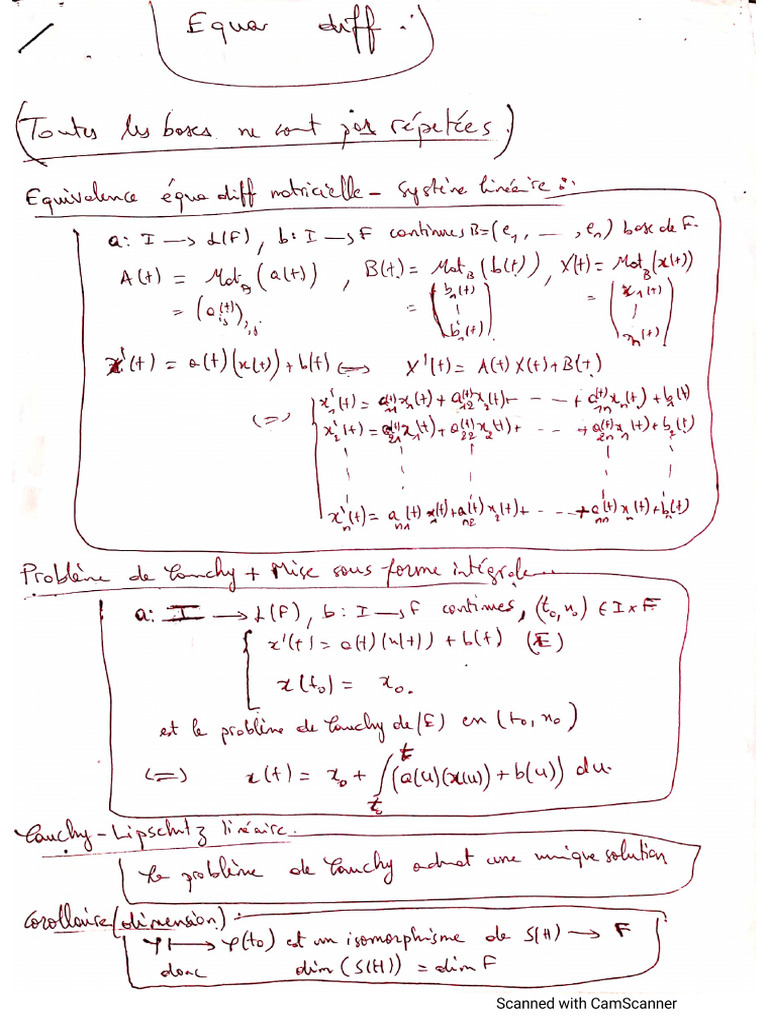 Equa diff :
(Toutes les bases ne sont pas répétées.)
Equivalence équa diff matricielle - système linéaire :
a: I → L(F), b: I → F continues B=(e_1, ..., e_n) base de F.
A(t) = Mat_B(a(t)), B(t) = Mat_B(b(t)), X(t) = Mat_B(x(t))
= (a_{i,j}(t))_{i,j} = (b_1(t) | b_n(t)) = (x_1(t) | x_n(t))
x'(t) = a(t)(x(t)) + b(t) <=> X'(t) = A(t)X(t) + B(t)
<=> x'_1(t) = a_{11}(t)x_1(t) + a_{12}(t)x_2(t) + - - - + a_{1n}(t)x_n(t) + b_1(t)
x'_2(t) = a_{21}(t)x_1(t) + a_{22}(t)x_2(t) + - - - + a_{2n}(t)x_n(t) + b_2(t)
x'_n(t) = a_{n1}(t)x_1(t) + a_{n2}(t)x_2(t) + - - - + a_{nn}(t)x_n(t) + b_n(t)
Problème de Cauchy + Mise sous forme intégrale
a: I → L(F), b: I → F continues, (t_0, x_0) ∈ I x F
x'(t) = a(t)(x(t)) + b(t) (E)
x(t_0) = x_0.
est le problème de Cauchy de (E) en (t_0, x_0)
<=> x(t) = x_0 + ∫_{t_0}^{t} (a(u)(x(u)) + b(u)) du.
Cauchy-Lipschitz linéaire.
Le problème de Cauchy admet une unique solution
Corollaire (dimension) :
φ ↦ φ(t_0) est un isomorphisme de S(H) → F
donc dim(S(H)) = dim F
Scanned with CamScanner